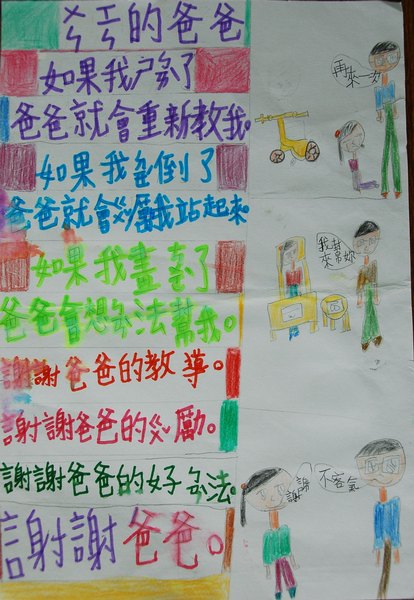 的爸爸
如果我了
爸爸就會重新教我。
如果我倒了
爸爸就會勵我站起來
如果我畫了
爸爸會想法幫我。
謝謝爸爸的教導。
謝謝爸爸的勵。
謝謝爸爸的好法。
謝謝爸爸。
再來一次
我來妳
謝謝
不客氣